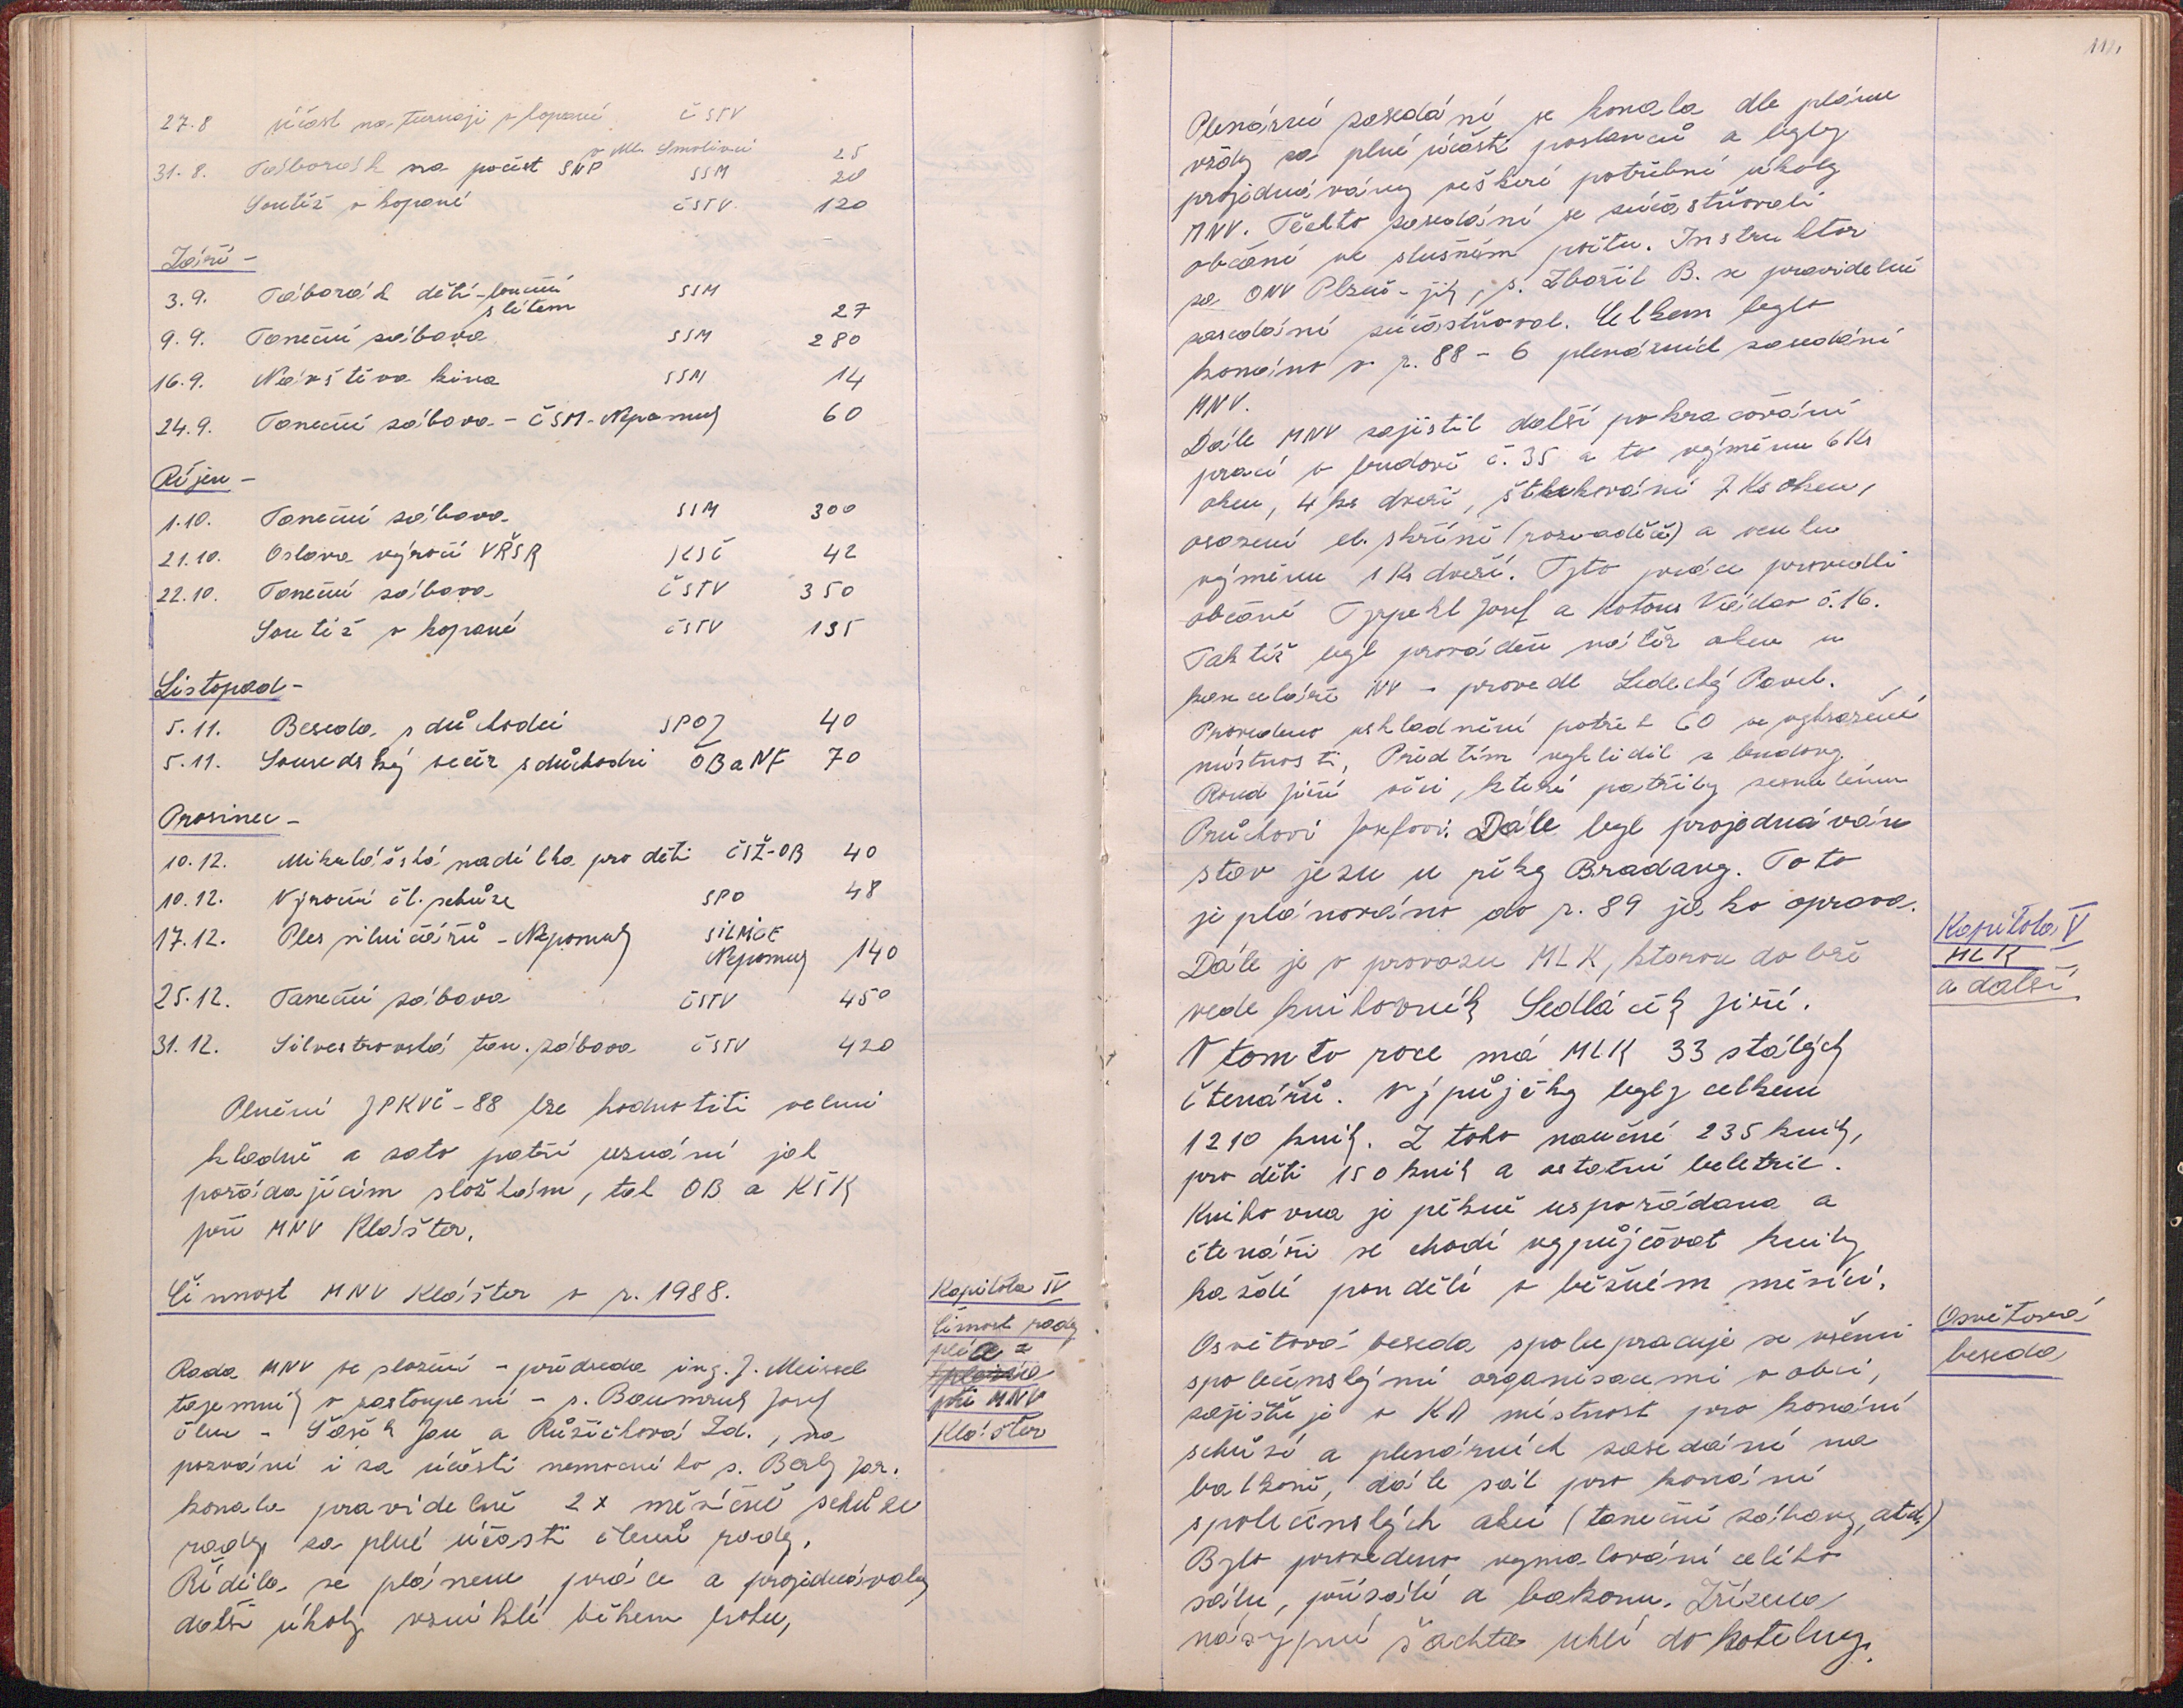 27.8 účast na turnaji v kopané ČSTV
v Ml. Smolivci 25
31.8. Táborák na počest SNP SSM 20
Soutěž v kopané ČSTV. 120
Září -
3.9. Táborák dětí - loučení SSM
s létem 27
9.9. Taneční zábava SSM 280
16.9. Návštěva kina SSM 14
24.9. Taneční zábava - ČSM - Nepomuk 60
Říjen -
1.10. Taneční zábava SSM 300
21.10. Oslava výročí VŘSR KSČ 42
22.10. Taneční zábava ČSTV 350
Soutěž v kopané ČSTV 135
Listopad -
5.11. Beseda s důchodci SPOZ 40
5.11. Sousedský večír s důchodci OB a NF 70
Prosinec -
10.12. Mikulášská nadílka pro děti ČSŽ-OB 40
10.12. Výroční čl. schůze SPO 48
17.12. Ples silničářů - Nepomuk SILNICE
Nepomuk 140
25.12. Taneční zábava ČSTV 450
31.12. Silvestrovská tan. zábava ČSTV 420
Plnění JPKVČ-88 lze hodnotiti velmi
kladně a zato patří uznání jak
pořádajícím složkám, tak OB a KŠK
při MNV Klášter.
Činnost MNV Klášter v r. 1988.
Kapitola IV
Činnost rady
a
při MNV
Klášter
Rada MNV ve složení - předseda ing. J. Meissel
tajemník v zastoupení - s. Baumruk Josef
člen - Šašek Jan a Růžičková Zd., na
pozvání i za účasti nemocného s. Berky Jar.
konala pravidelně 2x měsíčně schůze
rady za plné účasti členů rady.
Řídila se plánem práce a projednávaly
další úkoly vzniklé během roku,
111.
Plenární zasedání se konala dle plánu
vždy za plné účasti poslanců a byly
projednávány veškeré potřebné úkoly
MNV. Těchto zasedání se zúčastňovali
občané ve slušném počtu. Instruktor
za ONV Plzeň-jih, s. Zbořil B. se pravidelně
zasedání zúčastňoval. Celkem bylo
konáno v r. 88 - 6 plenárních zasedání
MNV.
Dále MNV zajistil další pokracování
prací v budově č. 35 a to výměnu 6 Ks
oken, 4 ks dveří, štukování 7 Ks oken,
osazení el. skříně (rozvaděče) a venku
výměnu 1 Ks dveří. Tyto práce provedli
občané Typekl Josef a Kotous Václav č. 16.
Taktéž byl prováděn nátěr oken u
kanceláře NV - provedl Ledecký Pavel.
Provedeno uskladnění potřeb CO ve vyhrazené
místnosti, Předtím vyklidil z budovy
Roud Jiří věci, které patřily zesnulému
Průchovi Josefovi. Dále byl projednáván
stav jezu u řeky Bradavy. Toto
je plánováno do r. 89 jako oprava.
Kapitola V
MLK
a další
Dále je v provozu MLK, kterou dobře
vede knihovník Sedláček Jiří.
V tomto roce má MLK 33 stálých
čtenářů. Výpůjčky byly celkem
1210 knih. Z toho naučné 235 knih,
pro děti 150 knih a ostatní beletrie.
Knihovna je pěkně uspořádana a
čtenáři se chodí vypůjčovat knihy
každé pondělí v běžném měsíci.
Osvětová
beseda
Osvětová beseda spolupracuje se všemi
společenskými organisacemi v obci,
zajištuje v KD místnost pro konání
schůzí a plenárních zasedání na
balkoně, dále sál pro konání
společenských akcí (taneční zábavy, atd.)
Bylo provedeno vymalování celého
sálu, přísálí a bakonu. Zřízena
násypná šachta uhlí do kotelny.